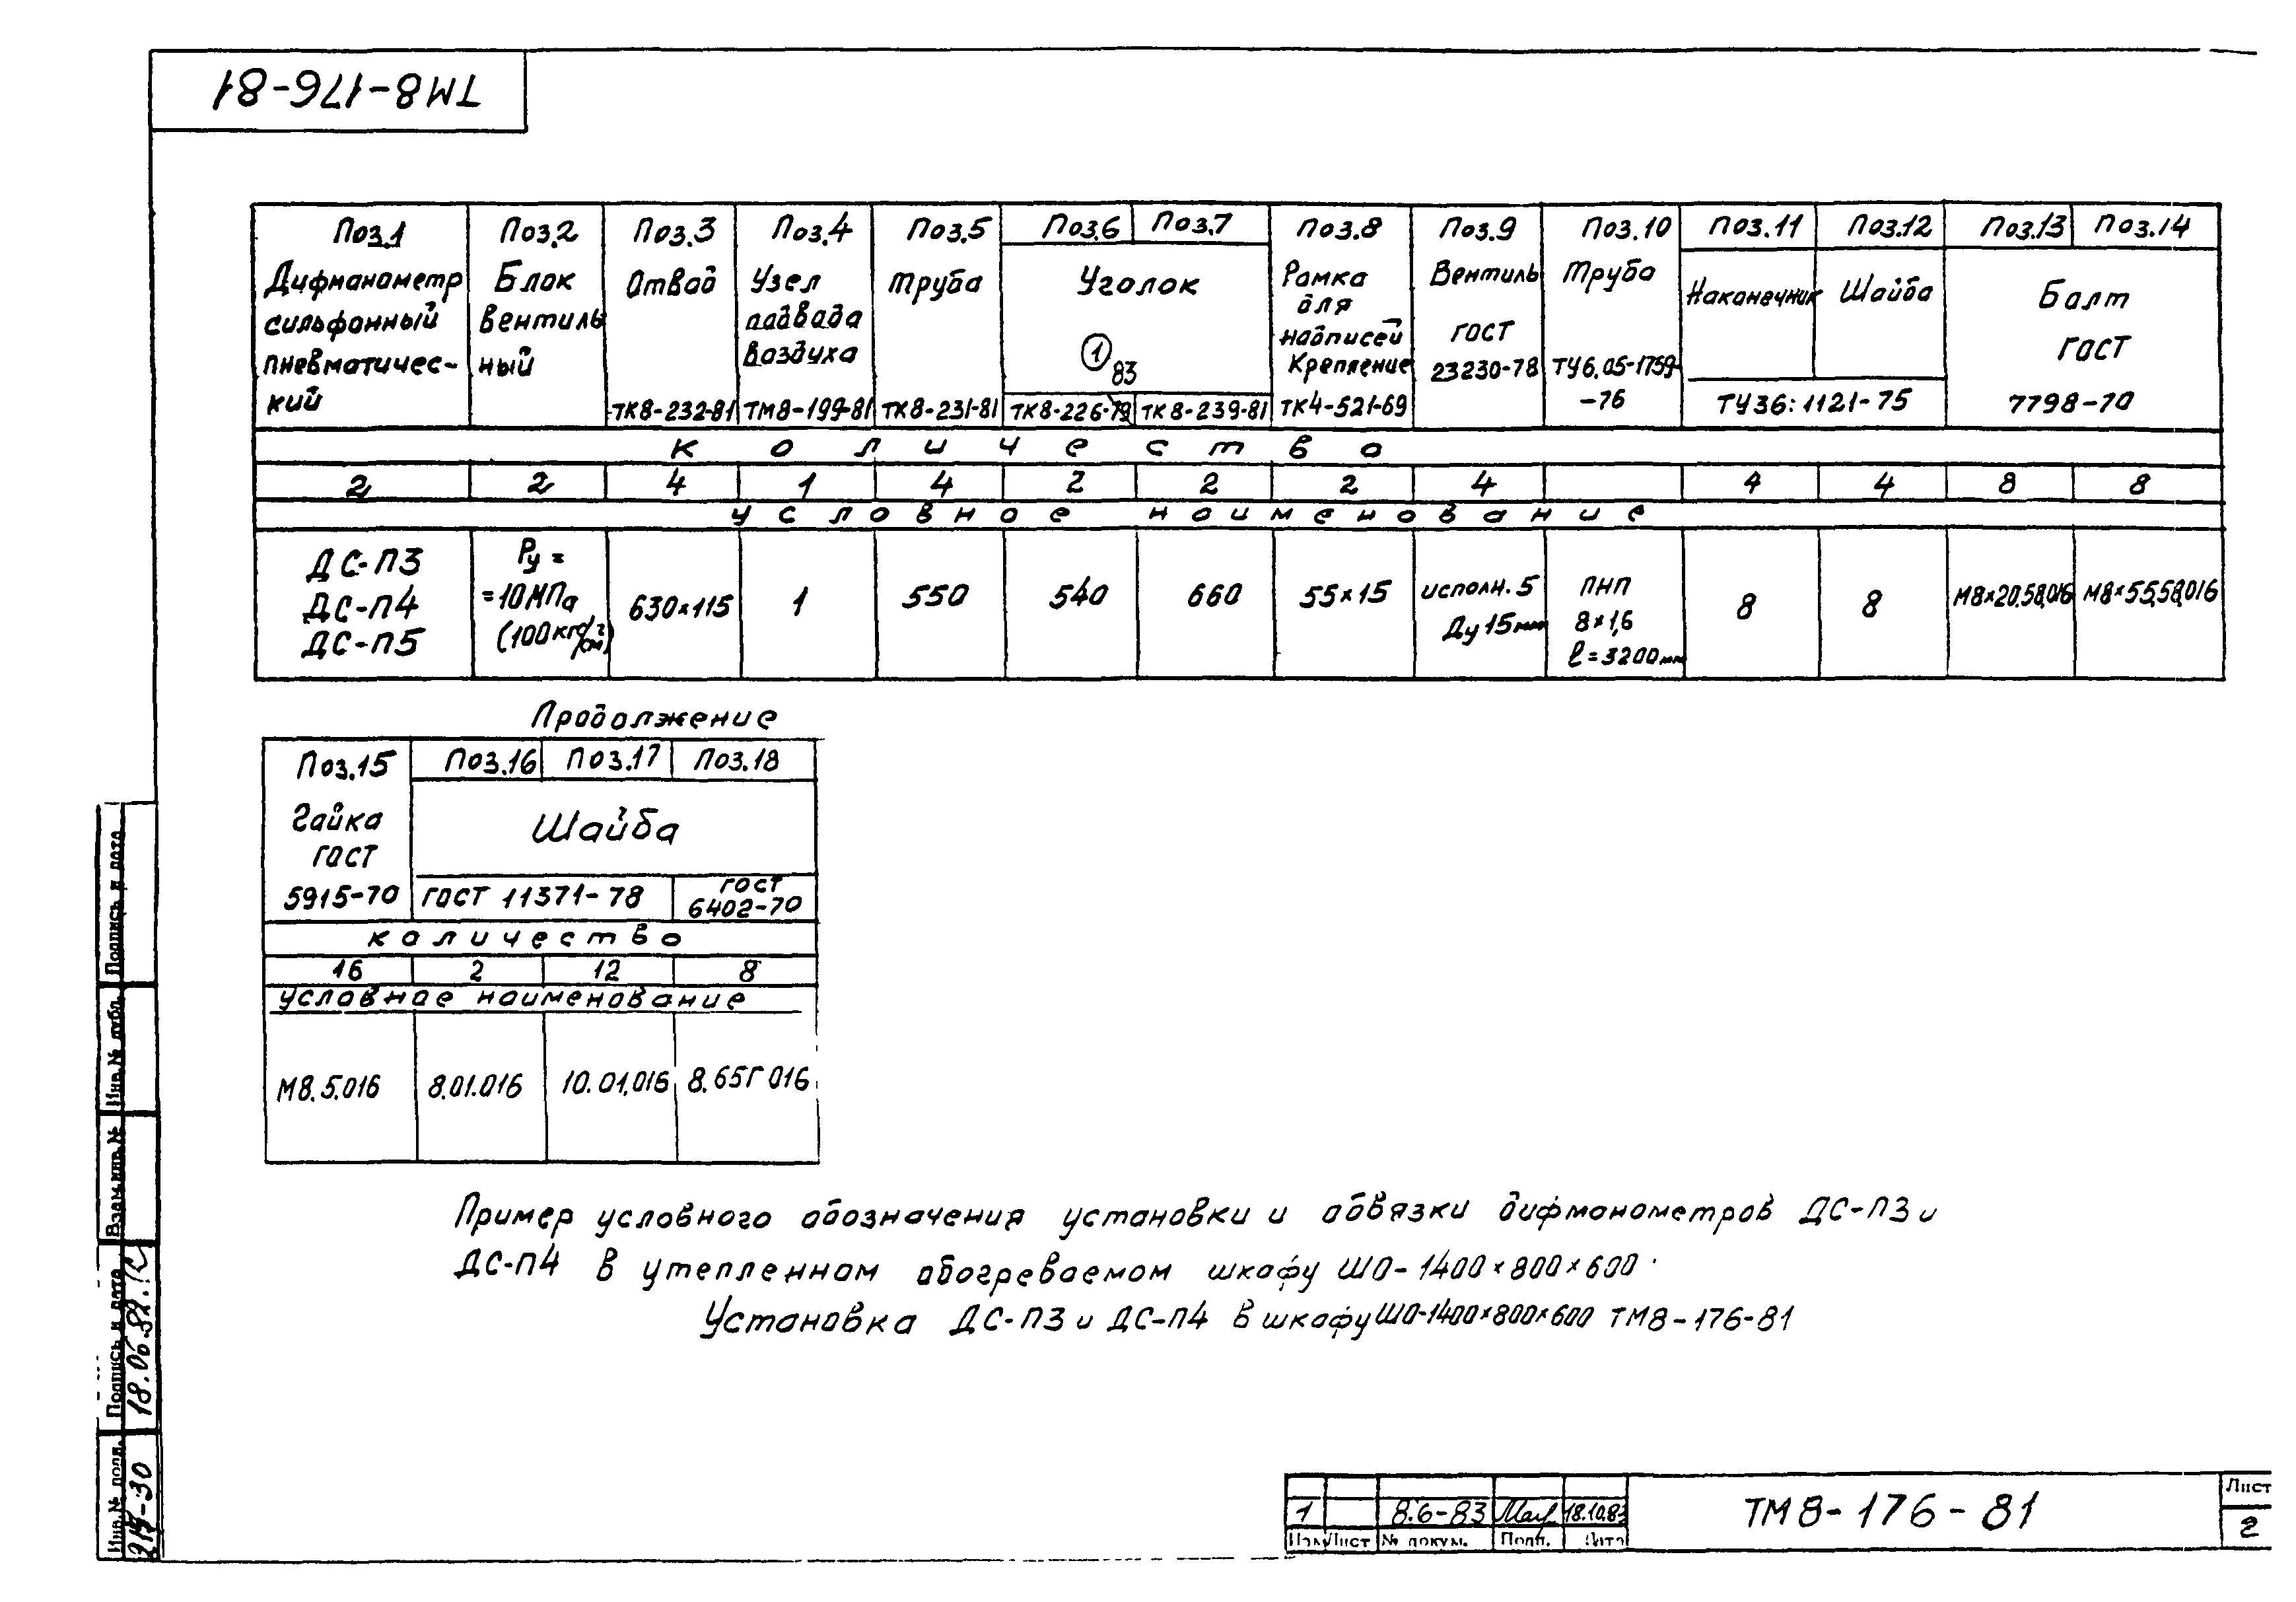 ТМ8-176-81
Поз.1 Поз.2 Поз.3 Поз.4 Поз.5 Поз.6 Поз.7 Поз.8 Поз.9 Поз.10 Поз.11 Поз.12 Поз.13 Поз.14
Дифманометр сильфонный пневматичес-кий
Блок вентиль ный
Отвод
ТК8-232-81
Узел подвода воздуха
ТМ8-199-81
Труба
ТК8-231-81
Уголок
1 83
ТК8-226-79 ТК8-239-81
Рамка для надписей Крепление
ТК4-521-69
Вентиль
ГОСТ
23230-78
Труба
ТУ6.05-1759-
-76
Наконечник Шайба
ТУ36:1121-75
Болт
ГОСТ
7798-70
количество
2 2 4 1 4 2 2 2 4 4 4 8 8
условное наименование
ДС-П3
ДС-П4
ДС-П5
Ру =
=10МПа
(100кгс/см²)
630×115
1
550
540
660
55×15
исполн. 5
Ду 15мм
ПНП
8×1,6
ℓ=3200мм
8
8
М8×20.58.016
М8×55.58.016
Продолжение
Поз.15 Поз.16 Поз.17 Поз.18
Гайка
ГОСТ
5915-70
Шайба
ГОСТ 11371-78
ГОСТ
6402-70
количество
16 2 12 8
условное наименование
М8.5.016 8.01.016 10.01.016 8.65Г016
Пример условного обозначения установки и обвязки дифманометров ДС-П3 и
ДС-П4 в утепленном обогреваемом шкафу ШО-1400×800×600
Установка ДС-П3 и ДС-П4 в шкафу ШО-1400×800×600 ТМ8-176-81
Подпись и дата
Инв.№ дубл.
Взам.инв.№
Подпись и дата
18.06.82.
Инв.№ подл.
1 8.6-83 18.10.83
Изм Лист № докум. Подп. Дата
ТМ8-176-81
Лист
2